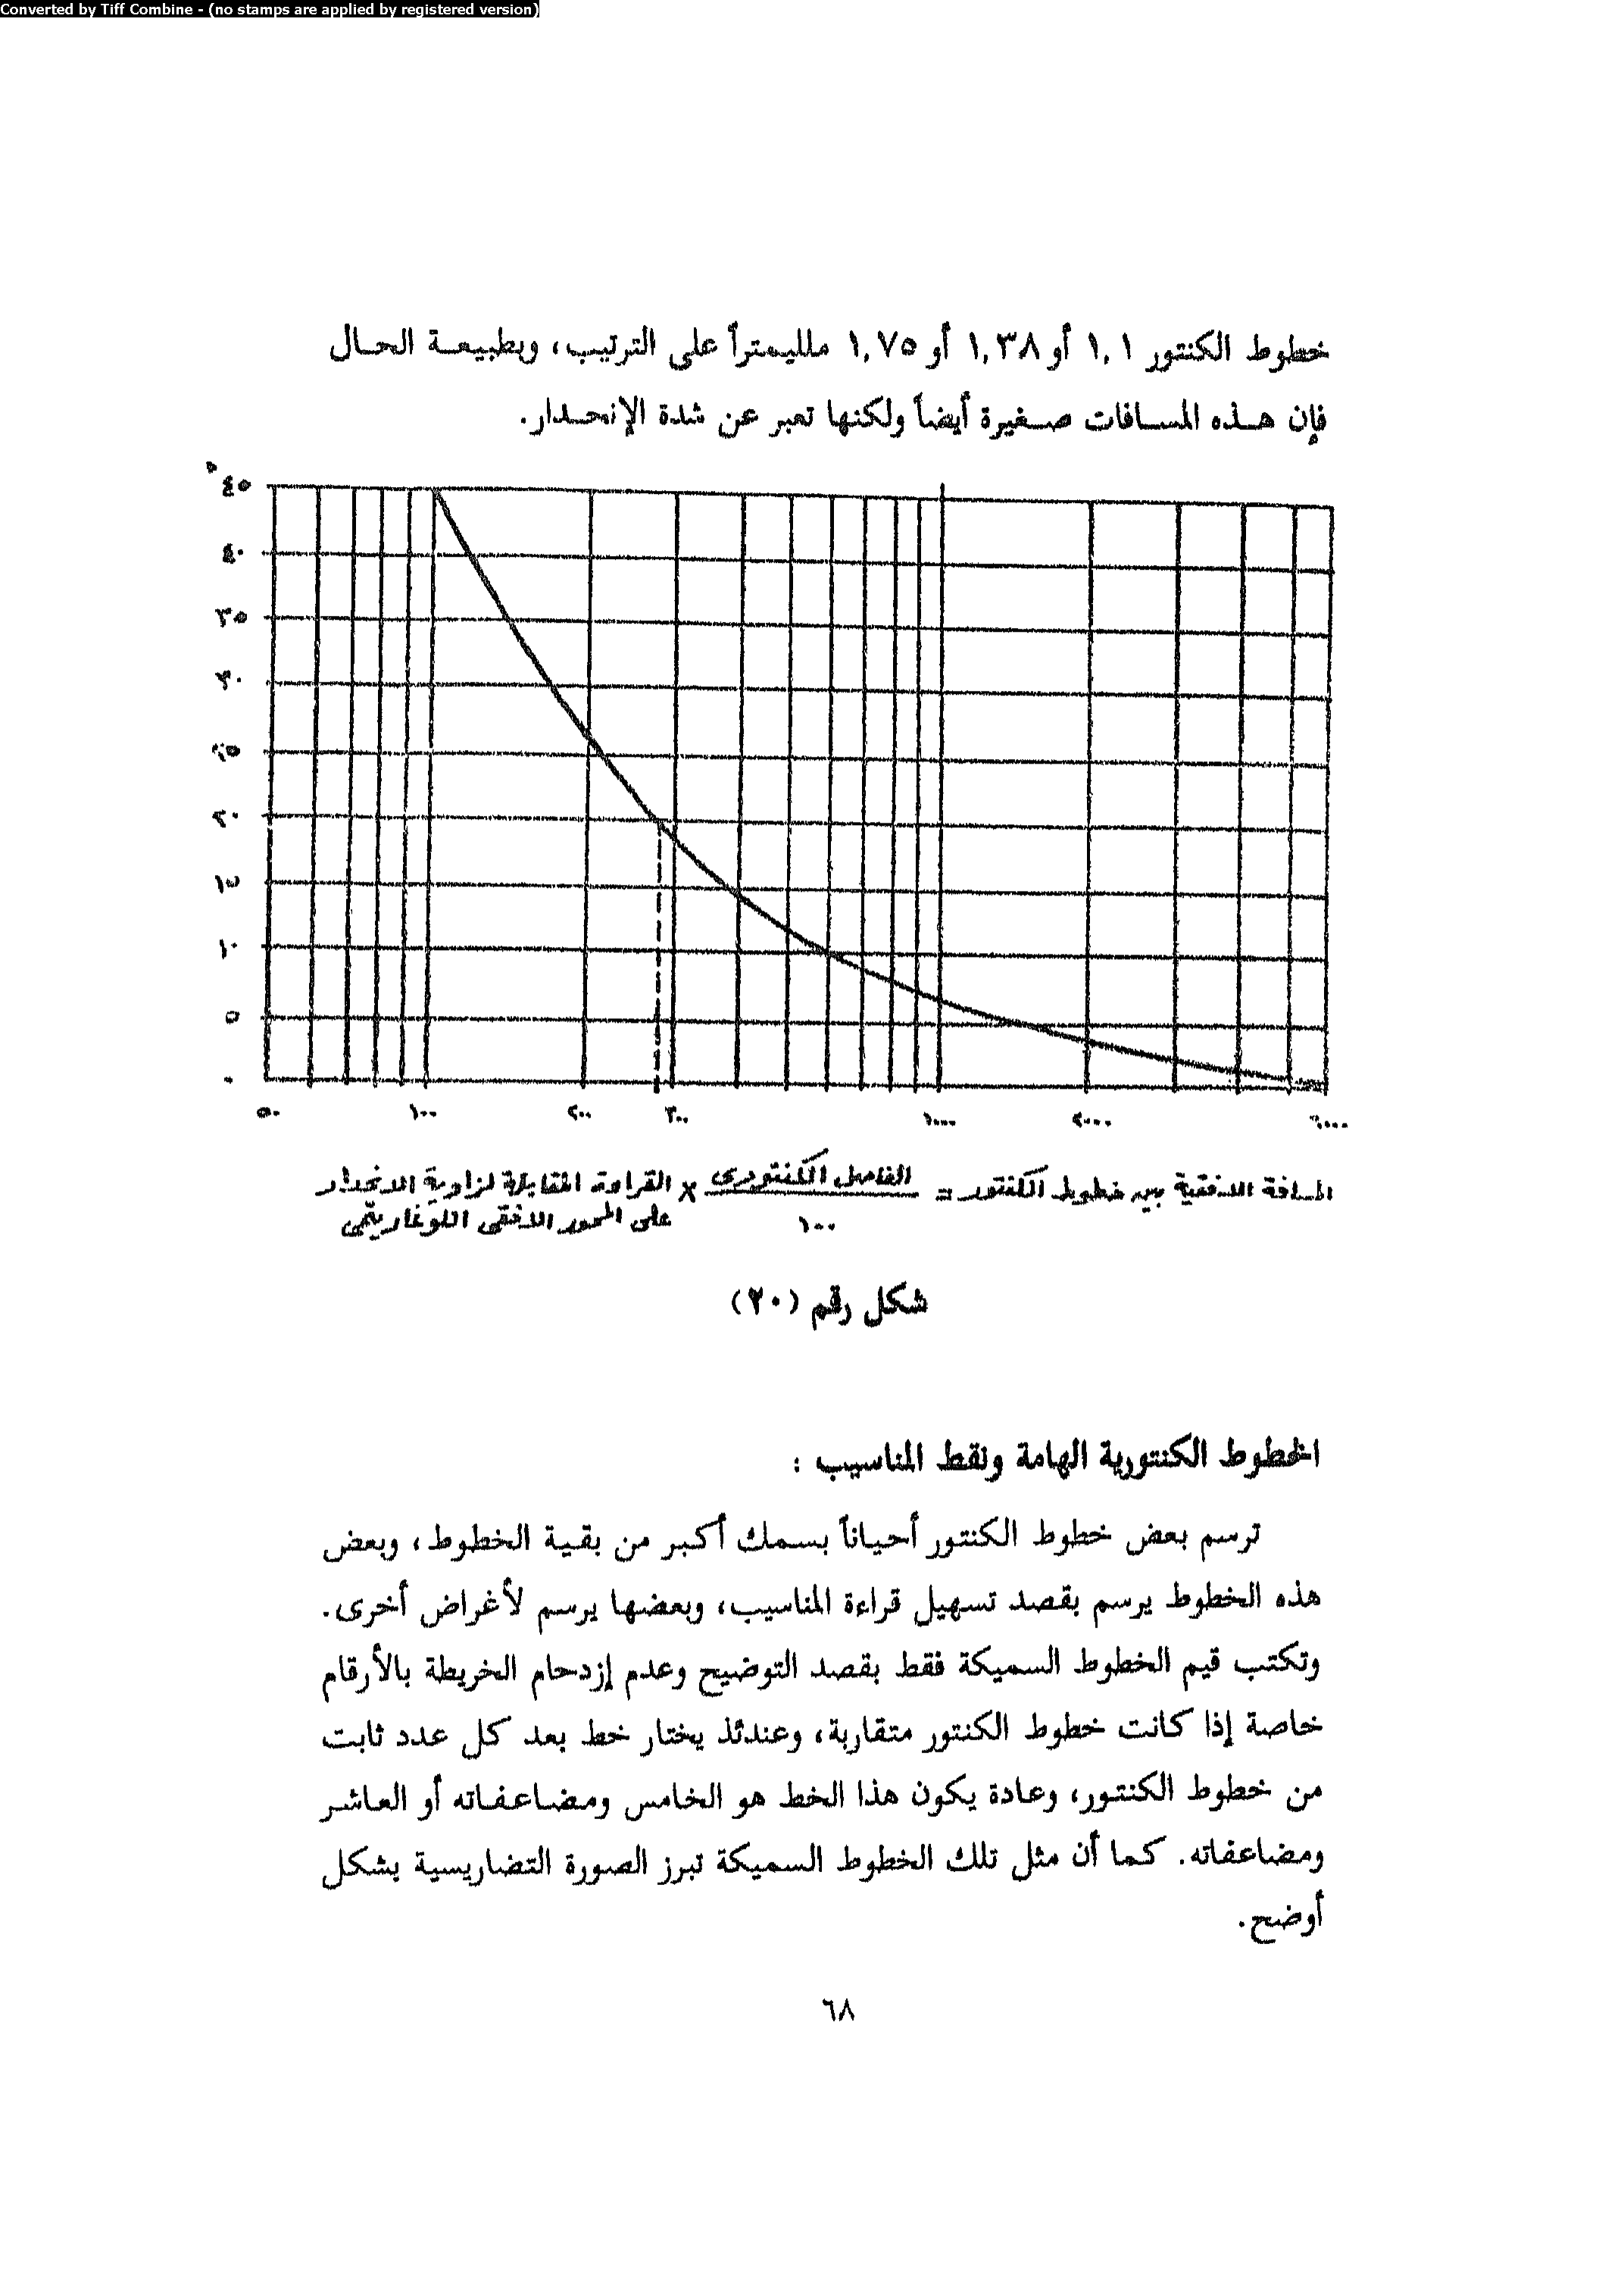 Converted by Tiff Combine - (no stamps are applied by registered version)
خطوط الكنتور ١,١ أو ١,٣٨ أو ١,٧٥ ملليمتراً على الترتيب، وبطبيعة الحال
فإن هذه المسافات صغيرة أيضاً ولكنها تعبر عن شدة الإنحدار.
٤٥
٤٠
٣٥
٣٠
٢٥
٢٠
١٥
١٠
٥
٠
٥٠ ١٠٠ ٢٠٠ ٣٠٠ ١٠٠٠ ٢٠٠٠ ٦٠٠٠
المسافة الافقية بين خطوط الكنتور = الفاصل الكنتورى × القراءة المقابلة لزاوية الانحدار
١٠٠ على المحور الافقى اللوغاريتمى
شكل رقم (٢٠)
الخطوط الكنتورية الهامة ونقط المناسيب :
ترسم بعض خطوط الكنتور أحياناً بسمك أكبر من بقية الخطوط، وبعض
هذه الخطوط يرسم بقصد تسهيل قراءة المناسيب، وبعضها يرسم لأغراض أخرى.
وتكتب قيم الخطوط السميكة فقط بقصد التوضيح وعدم إزدحام الخريطة بالأرقام
خاصة إذا كانت خطوط الكنتور متقاربة، وعندئذ يختار خط بعد كل عدد ثابت
من خطوط الكنتور، وعادة يكون هذا الخط هو الخامس ومضاعفاته أو العاشر
ومضاعفاته. كما أن مثل تلك الخطوط السميكة تبرز الصورة التضاريسية بشكل
أوضح.
٦٨